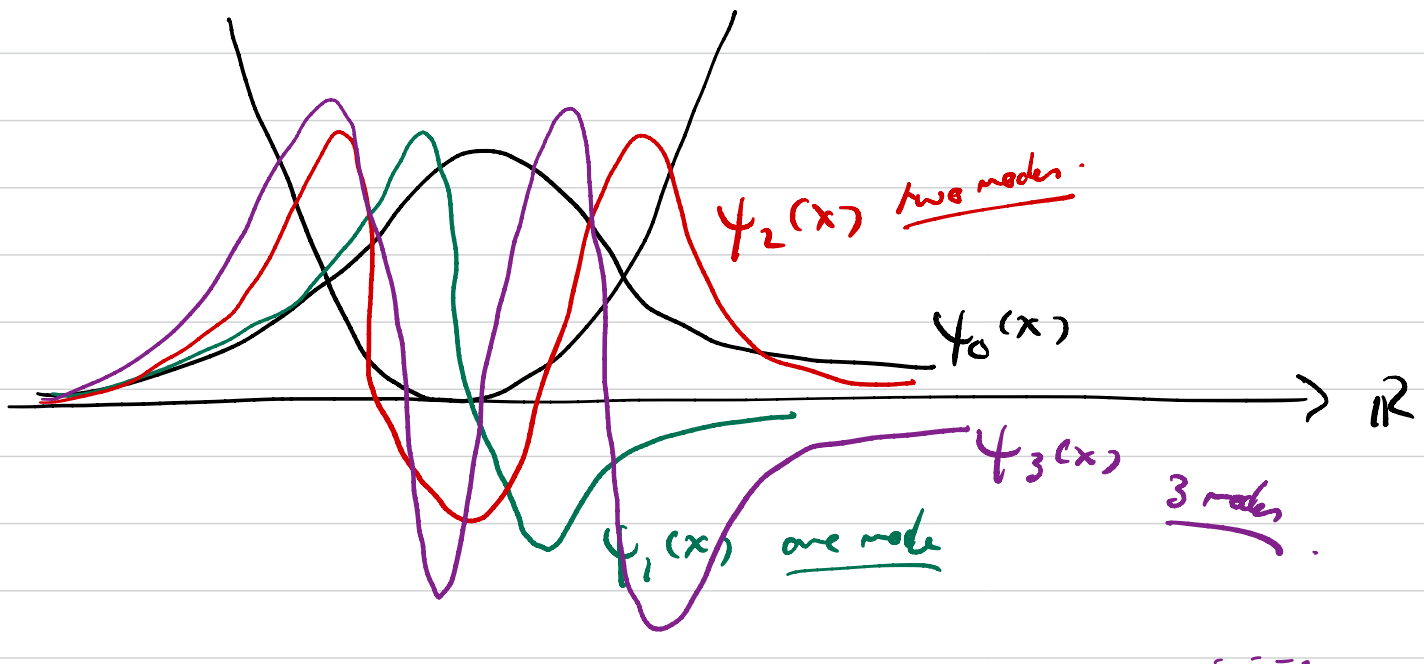 ψ₂(x) two nodes.
ψ₀(x)
ℝ
ψ₃(x)
3 nodes.
ψ₁(x) one node